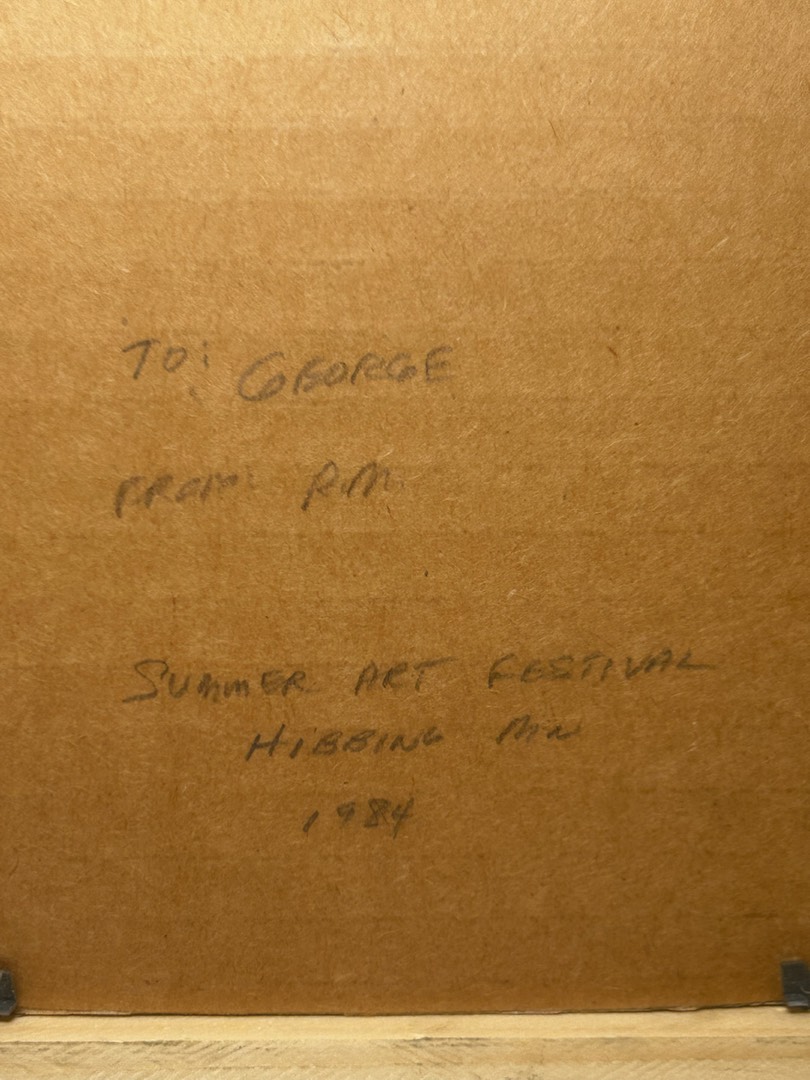 TO: GEORGE
FROM: R.M.
SUMMER ART FESTIVAL
HIBBING MN
1984